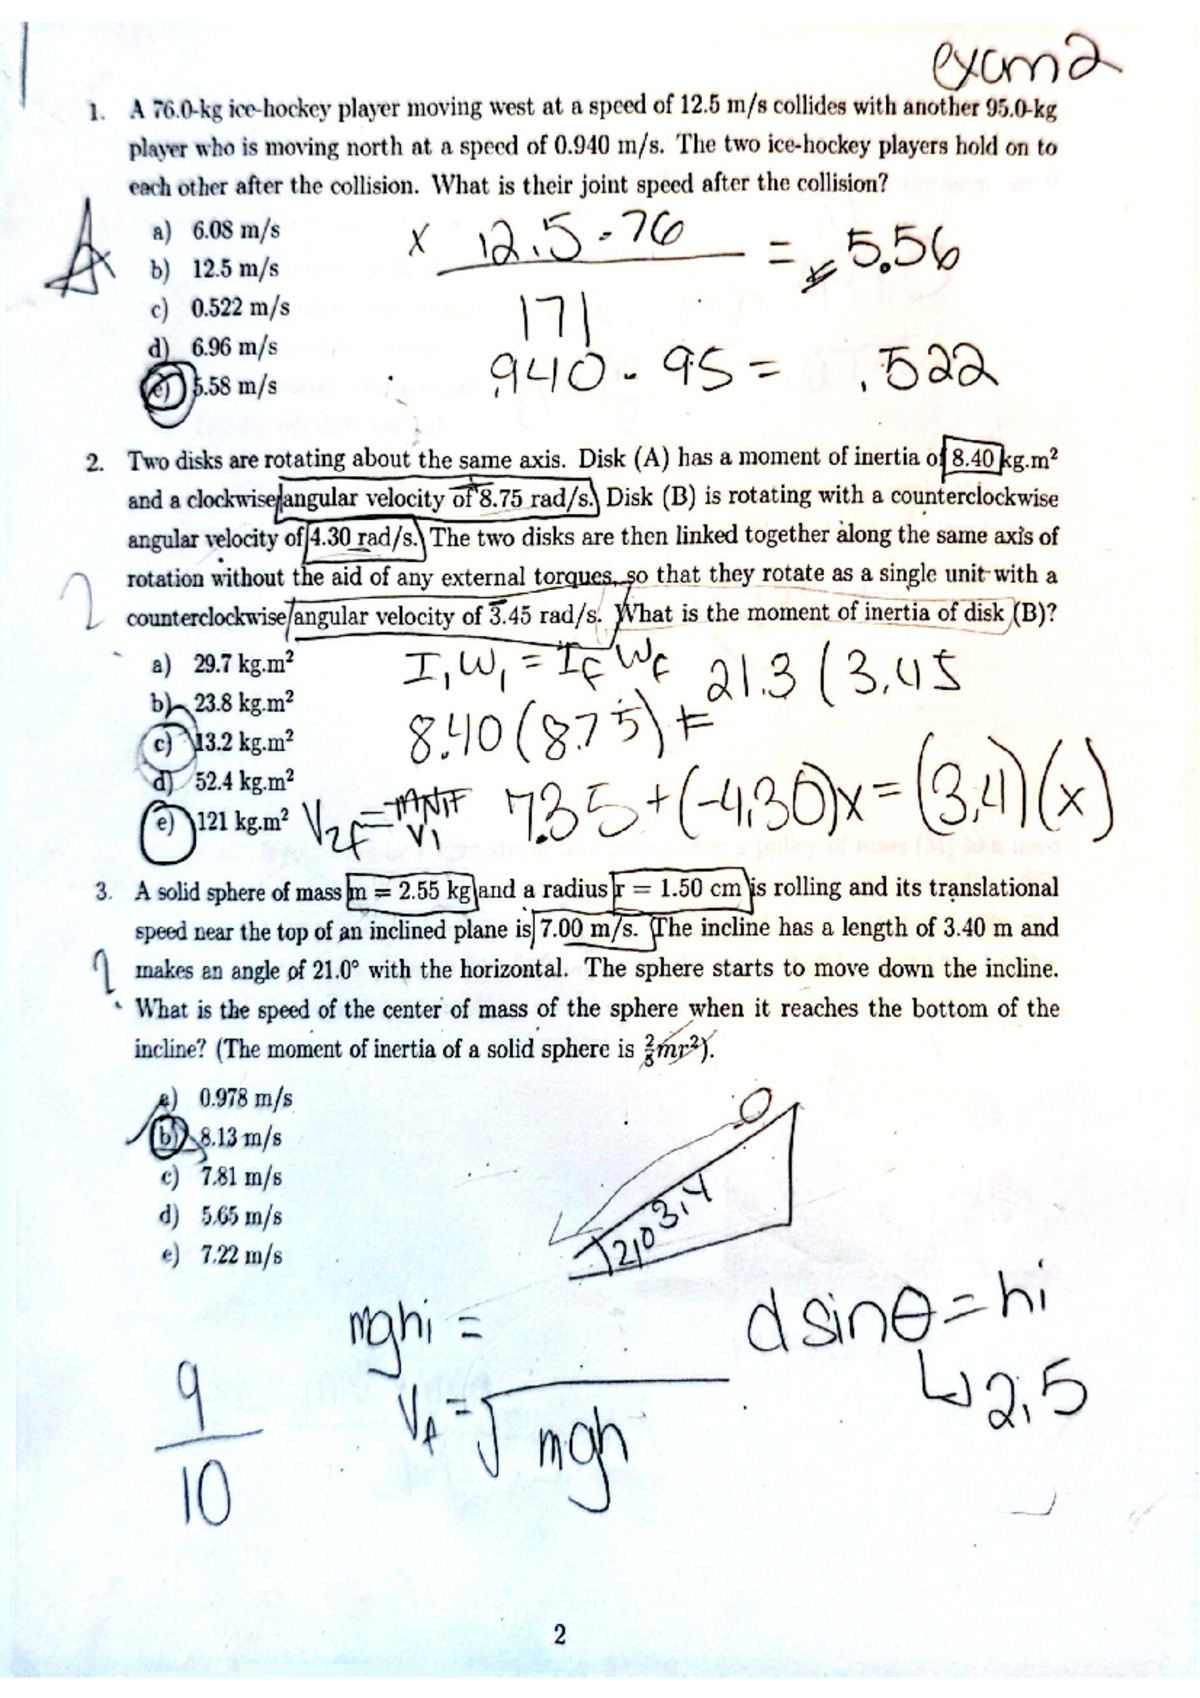 exam2
1. A 76.0-kg ice-hockey player moving west at a speed of 12.5 m/s collides with another 95.0-kg
player who is moving north at a speed of 0.940 m/s. The two ice-hockey players hold on to
each other after the collision. What is their joint speed after the collision?
a) 6.08 m/s
b) 12.5 m/s
c) 0.522 m/s
d) 6.96 m/s
e) 5.58 m/s
x 12.5 - 76 = 5.56
171
.940 - 95 = .522
2. Two disks are rotating about the same axis. Disk (A) has a moment of inertia of 8.40 kg.m²
and a clockwise angular velocity of 8.75 rad/s. Disk (B) is rotating with a counterclockwise
angular velocity of 4.30 rad/s. The two disks are then linked together along the same axis of
rotation without the aid of any external torques, so that they rotate as a single unit with a
counterclockwise angular velocity of 3.45 rad/s. What is the moment of inertia of disk (B)?
2
a) 29.7 kg.m²
b) 23.8 kg.m²
c) 13.2 kg.m²
d) 52.4 kg.m²
e) 121 kg.m²
I₁W₁ = IfWf 21.3 (3.45
8.40 (8.75) +=
73.5 + (-4.30)x = (3.4)(x)
V2f =
V1
3. A solid sphere of mass m = 2.55 kg and a radius r = 1.50 cm is rolling and its translational
speed near the top of an inclined plane is 7.00 m/s. The incline has a length of 3.40 m and
makes an angle of 21.0° with the horizontal. The sphere starts to move down the incline.
What is the speed of the center of mass of the sphere when it reaches the bottom of the
incline? (The moment of inertia of a solid sphere is ⅖mr²).
a) 0.978 m/s
b) 8.13 m/s
c) 7.81 m/s
d) 5.65 m/s
e) 7.22 m/s
3.4
210
mghi =
d sinθ = hi
↳ 2.5
VA = √mgh
9
10
2